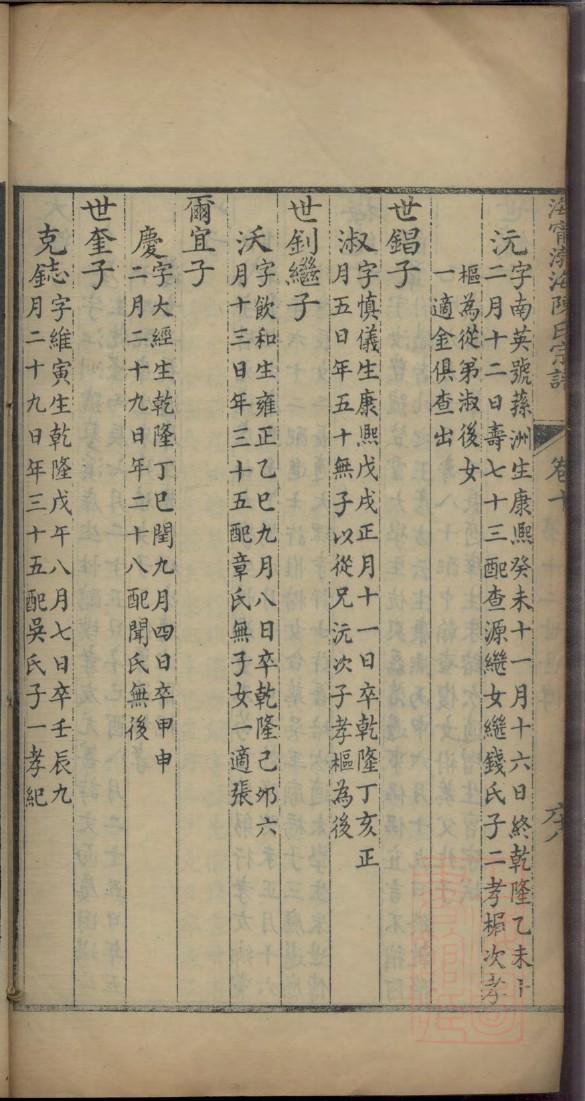 海甯渤海陳氏宗譜
卷十
六八
沅
字南英號蓀洲生康熙癸未十一月十六日終乾隆乙未十
二月十二日壽七十三配查源繼女繼錢氏子二孝楣次孝
樞為從弟淑後女
一適金俱查出
世錩子
淑
字慎儀生康熙戊戌正月十一日卒乾隆丁亥正
月五日年五十無子以從兄沅次子孝樞為後
世釗繼子
沃
字飲和生雍正乙巳九月八日卒乾隆己夘六
月十三日年三十五配章氏無子女一適張
爾宜子
慶
字大經生乾隆丁巳閏九月四日卒甲申
二月二十九日年二十八配聞氏無後
世奎子
克鋕
字維寅生乾隆戊午八月七日卒壬辰九
月二十九日年三十五配吳氏子一孝紀